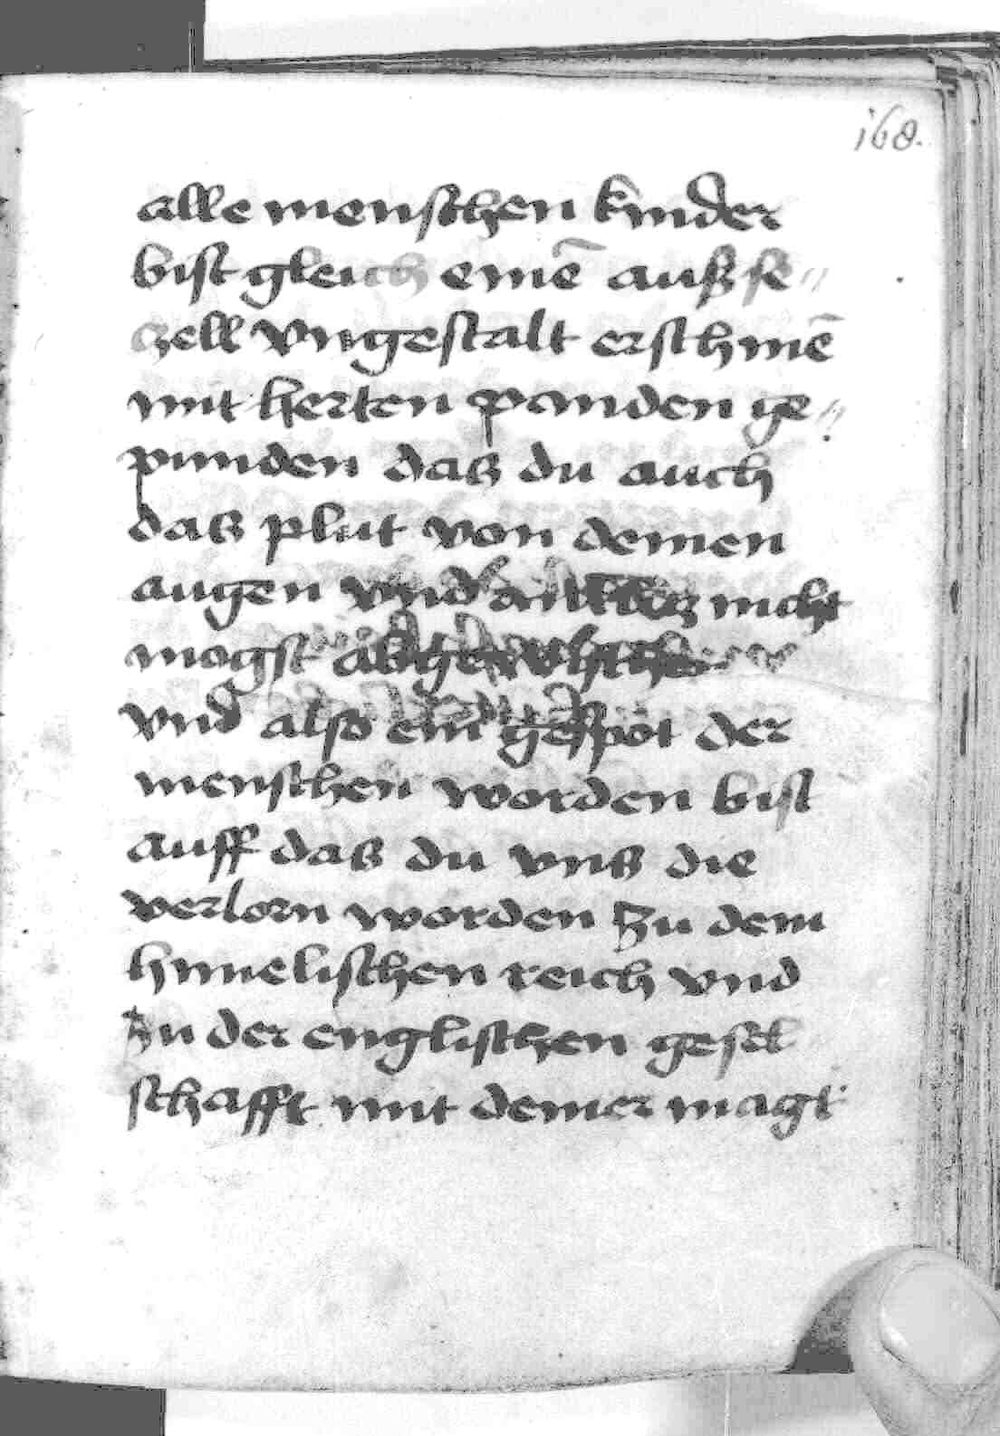 168.
alle menschen kinder
bist gleich einē außse〃
czell vngestalt erschinē
mit herten panden ge〃
punden das du auch
das plut von deinen
augen vnd antlicz nicht
mogst
vnd also ein gespot der
menschen worden bist
auff das du vns die
verlorn worden zu dem
himelischen reich vnd
zu der englischen gesel
schafft mit deiner magt